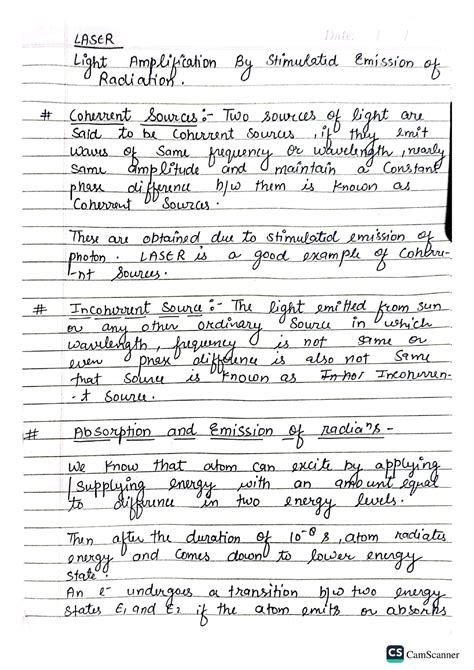 Date: / /
LASER
Light Amplification By Stimulated Emission of
Radiation.
# Coherrent Sources:- Two sources of light are
said to be Coherrent sources, if they emit
waves of same frequency or wavelength, nearly
same amplitude and maintain a Constant
phase difference b/w them is known as
Coherrent Sources.
These are obtained due to stimulated emission of
photon. LASER is a good example of Coherr-
-nt Sources.
# Incoherrent Source:- The light emitted from sun
or any other ordinary Source in which
wavelength, frequency is not same or
even phase difference is also not Same
that Source is known as Incoherren-
-t Source.
# Absorption and Emission of radians -
We know that atom can excite by applying
/Supplying energy with an amount equal
to difference in two energy levels.
Then after the duration of 10⁻⁸ s, atom radiates
energy and comes down to lower energy
state.
An e⁻ undergoes a transition b/w two energy
states E₁ and E₂ if the atom emits or absorbs
CS CamScanner